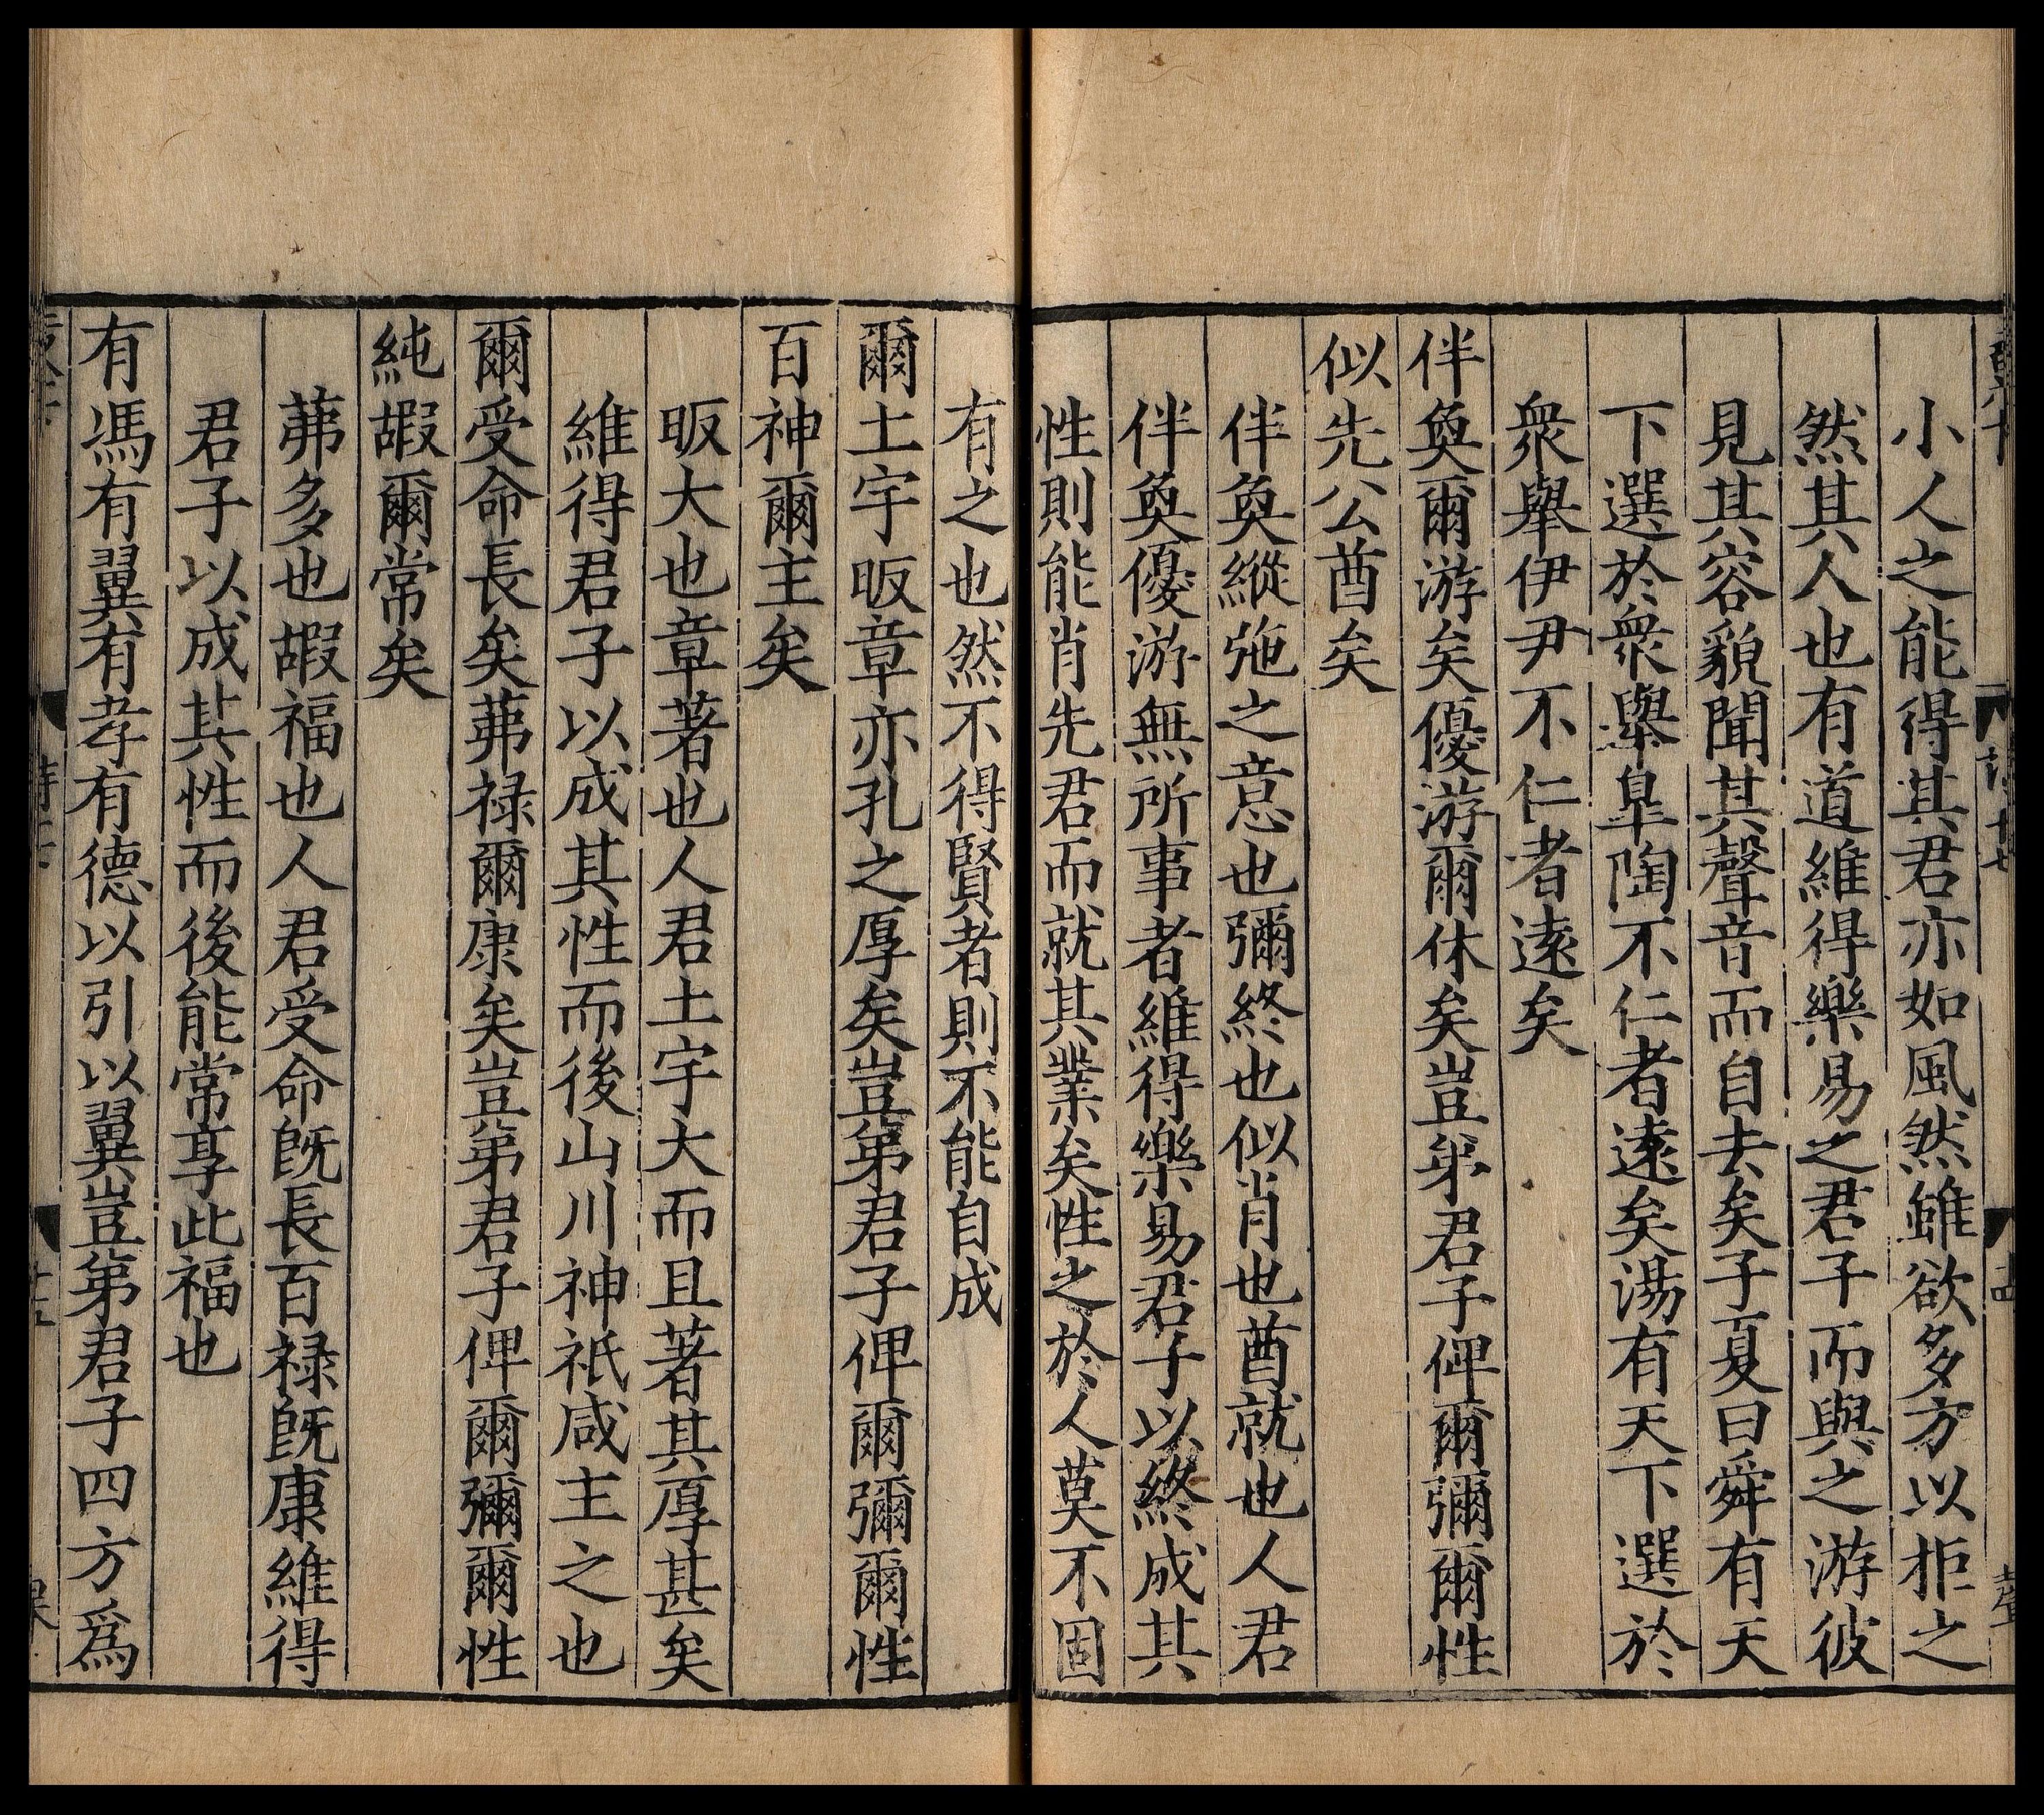 小人之能得其君亦如風然雖欲多方以拒之
然其人也有道維得樂易之君子而與之游彼
見其容貌聞其聲音而自去矣子夏曰舜有天
下選於衆舉臯陶不仁者遠矣湯有天下選於
衆舉伊尹不仁者遠矣
伴奐爾游矣優游爾休矣豈弟君子俾爾彌爾性
似先公酋矣
伴奐縱弛之意也彌終也似肖也酋就也人君
伴奐優游無所事者維得樂易君子以終成其
性則能肖先君而就其業矣性之於人莫不固
有之也然不得賢者則不能自成
爾土宇昄章亦孔之厚矣豈弟君子俾爾彌爾性
百神爾主矣
昄大也章著也人君土宇大而且著其厚甚矣
維得君子以成其性而後山川神祇咸主之也
爾受命長矣茀祿爾康矣豈弟君子俾爾彌爾性
純嘏爾常矣
茀多也嘏福也人君受命旣長百祿旣康維得
君子以成其性而後能常享此福也
有馮有翼有孝有德以引以翼豈弟君子四方爲